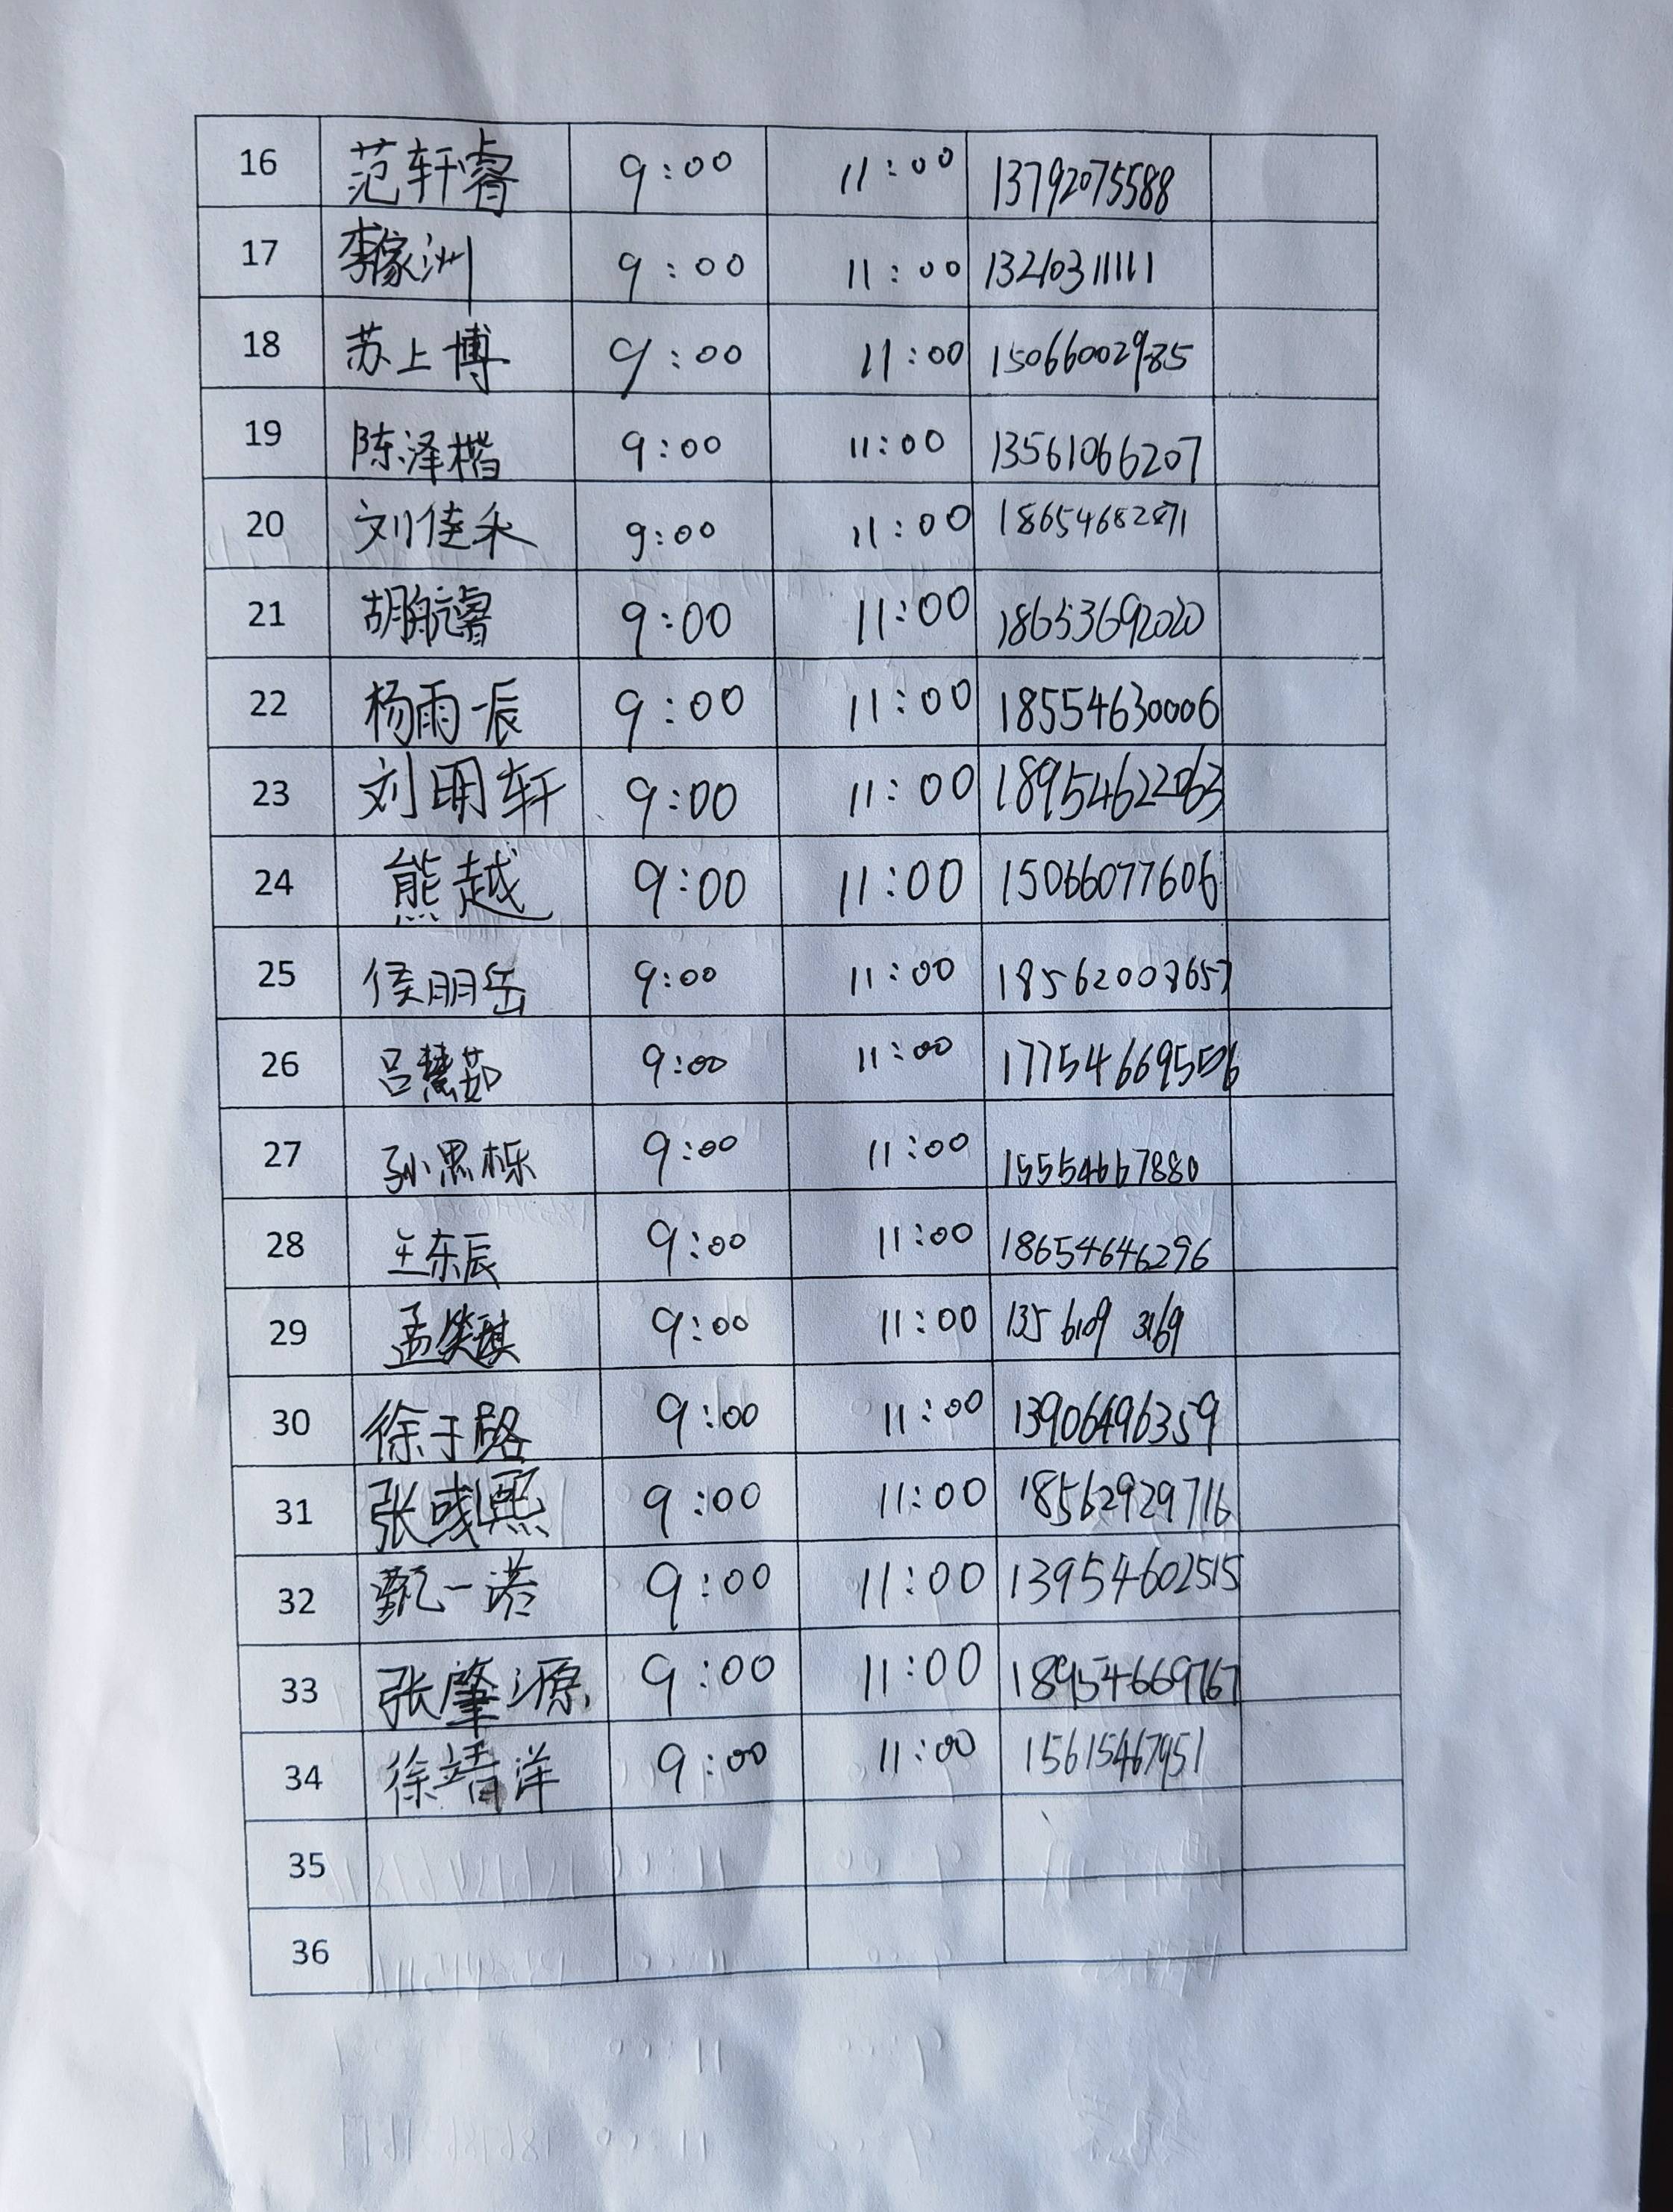 16 范轩睿 9:00 11:00 13792075588
17 李家洲 9:00 11:00 13210311111
18 苏上博 9:00 11:00 15066002985
19 陈泽楷 9:00 11:00 13561066207
20 刘佳禾 9:00 11:00 18654682871
21 胡航睿 9:00 11:00 18653692020
22 杨雨辰 9:00 11:00 18554630006
23 刘明轩 9:00 11:00 18954622063
24 熊越 9:00 11:00 15066077606
25 侯明岳 9:00 11:00 18562008657
26 吕慧茹 9:00 11:00
27 孙思栎 9:00 11:00 15554667880
28 王东辰 9:00 11:00 18654646296
29 孟 9:00 11:00 135 6109 3169
30 徐于 9:00 11:00 13906496359
31 张 熙 9:00 11:00 18562929716
32 甄一诺 9:00 11:00 13954602515
33 张肇源 9:00 11:00 18954669767
34 徐靖洋 9:00 11:00 15615467951
35
36